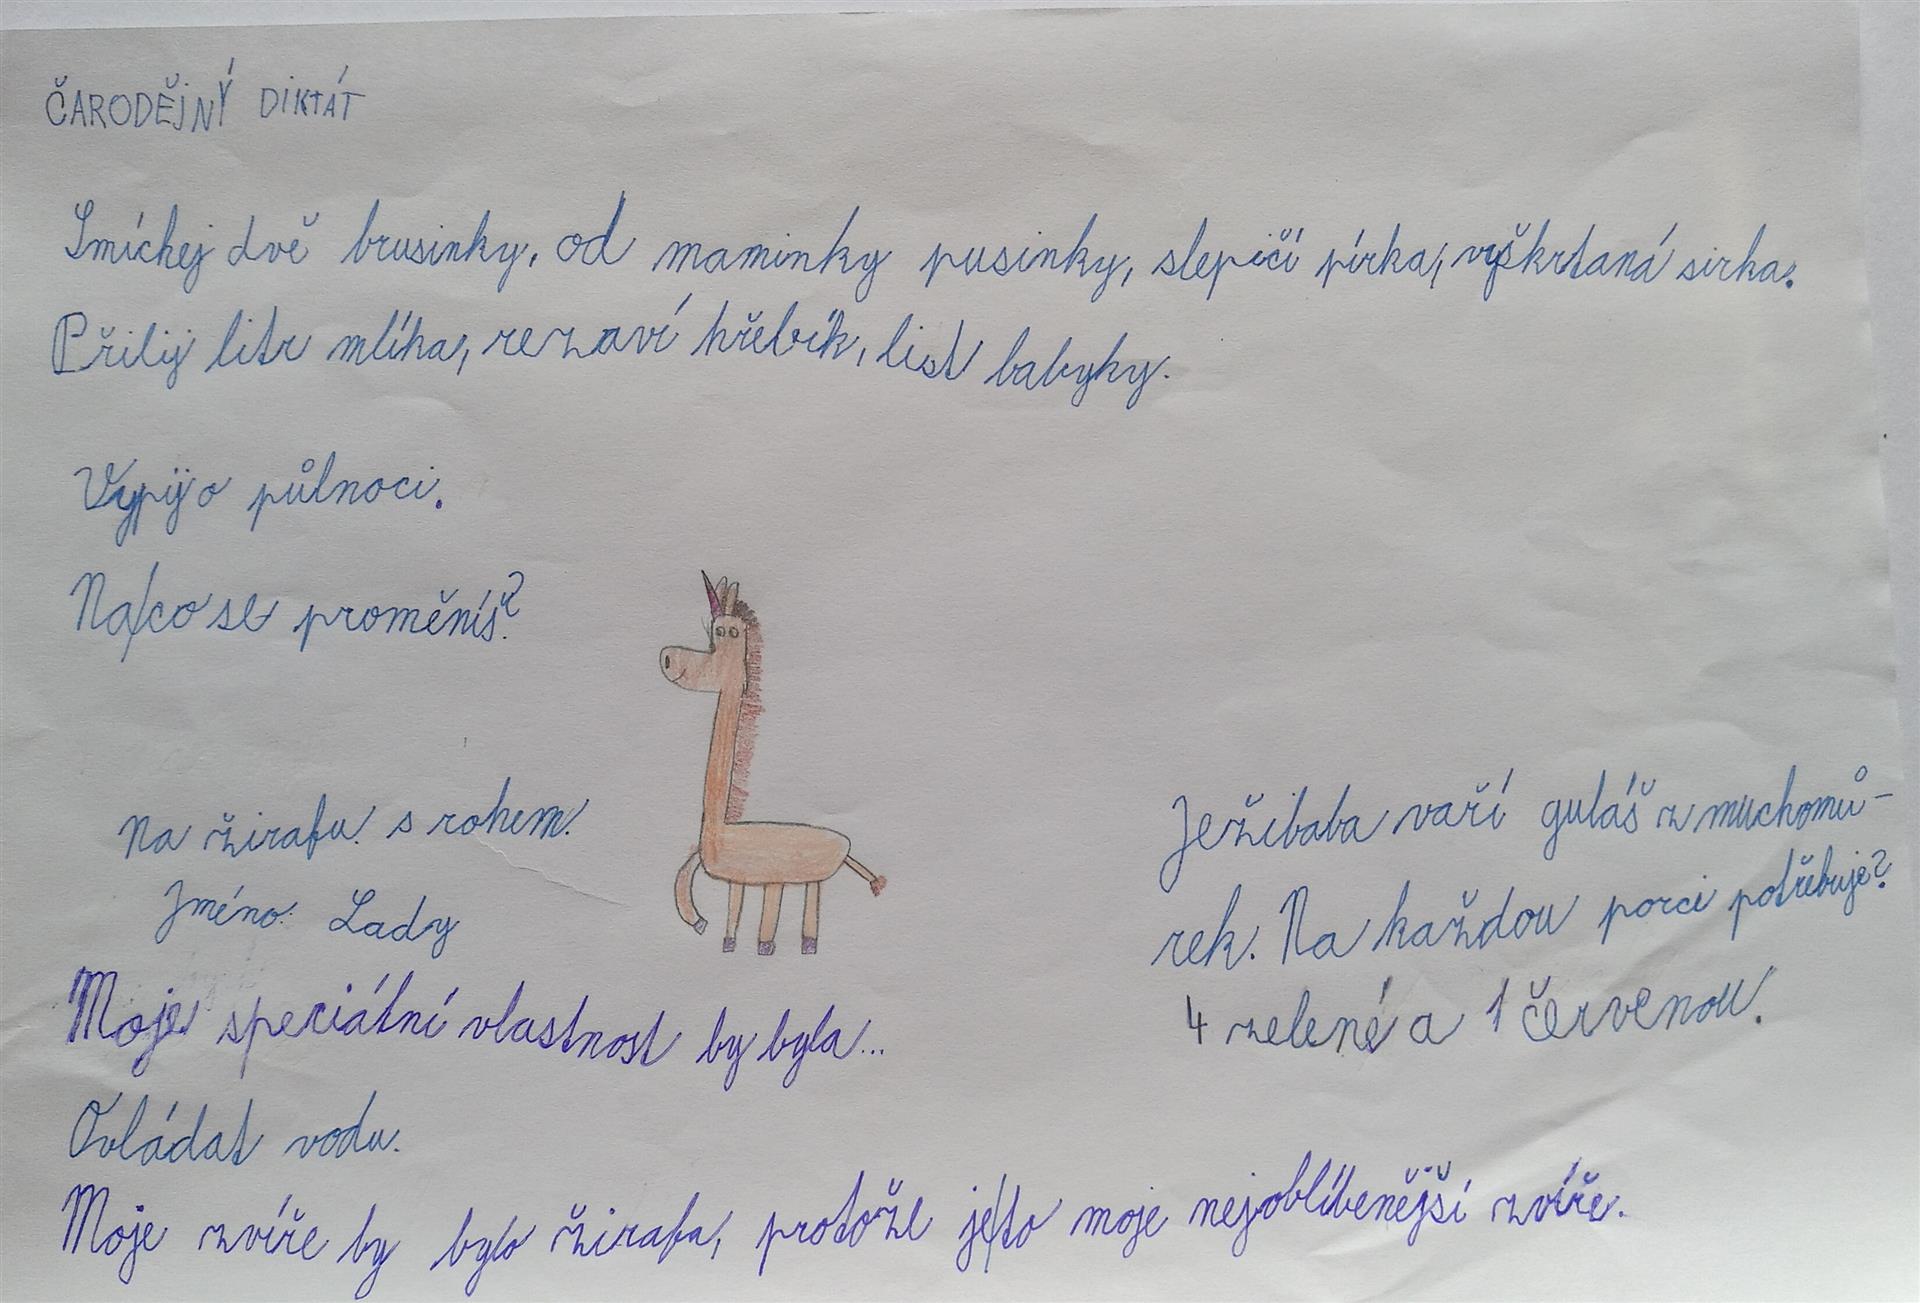 ČARODĚJNÝ DIKTÁT
Smíchej dvě brusinky, od maminky pusinky, slepičí pírka, vyškrtaná sirka.
Přilij litr mlíka, rezaví hřebík, list babyky.
Vypij o půlnoci.
Na/co se proměníš?
Na žirafu s rohem.
Jméno: Lady
Moje speciální vlastnost by byla...
Ovládat vodu.
Moje zvíře by bylo žirafa, protože je/to moje nejoblíbenější zvíře.
Ježibaba vaří guláš z muchomů-
rek. Na každou porci potřebuje?
4 zelené a 1 červenou.